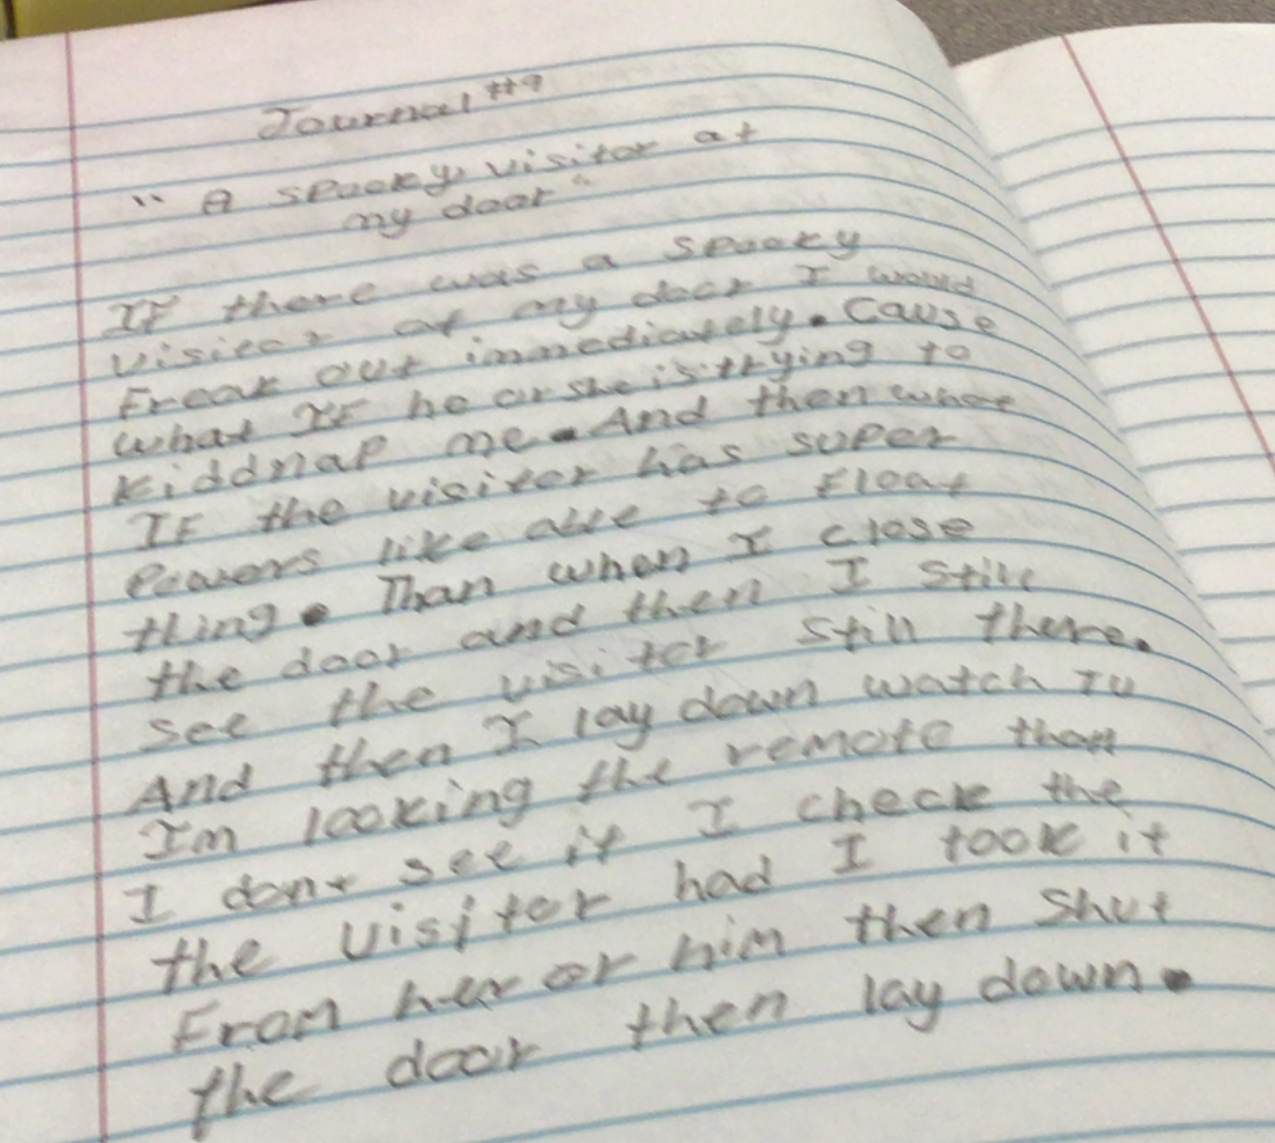 Journal #9
"A spooky visitor at
my door"
If there was a spooky
visiter at my door I would
Freak out immediately. Cause
what If he or she is trying to
kiddnap me. And then what
If the visiter has super
Powers like able to float
thing. Than when I close
the door and then I still
see the visitor still there.
And then I lay down watch TV
Im looking the remote than
I dont see it I check the
the visiter had I took it
From her or him then shut
the door then lay down.